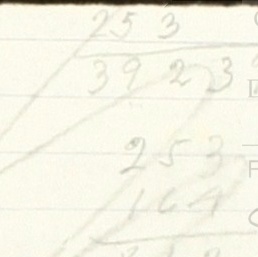 253
3923
253
164